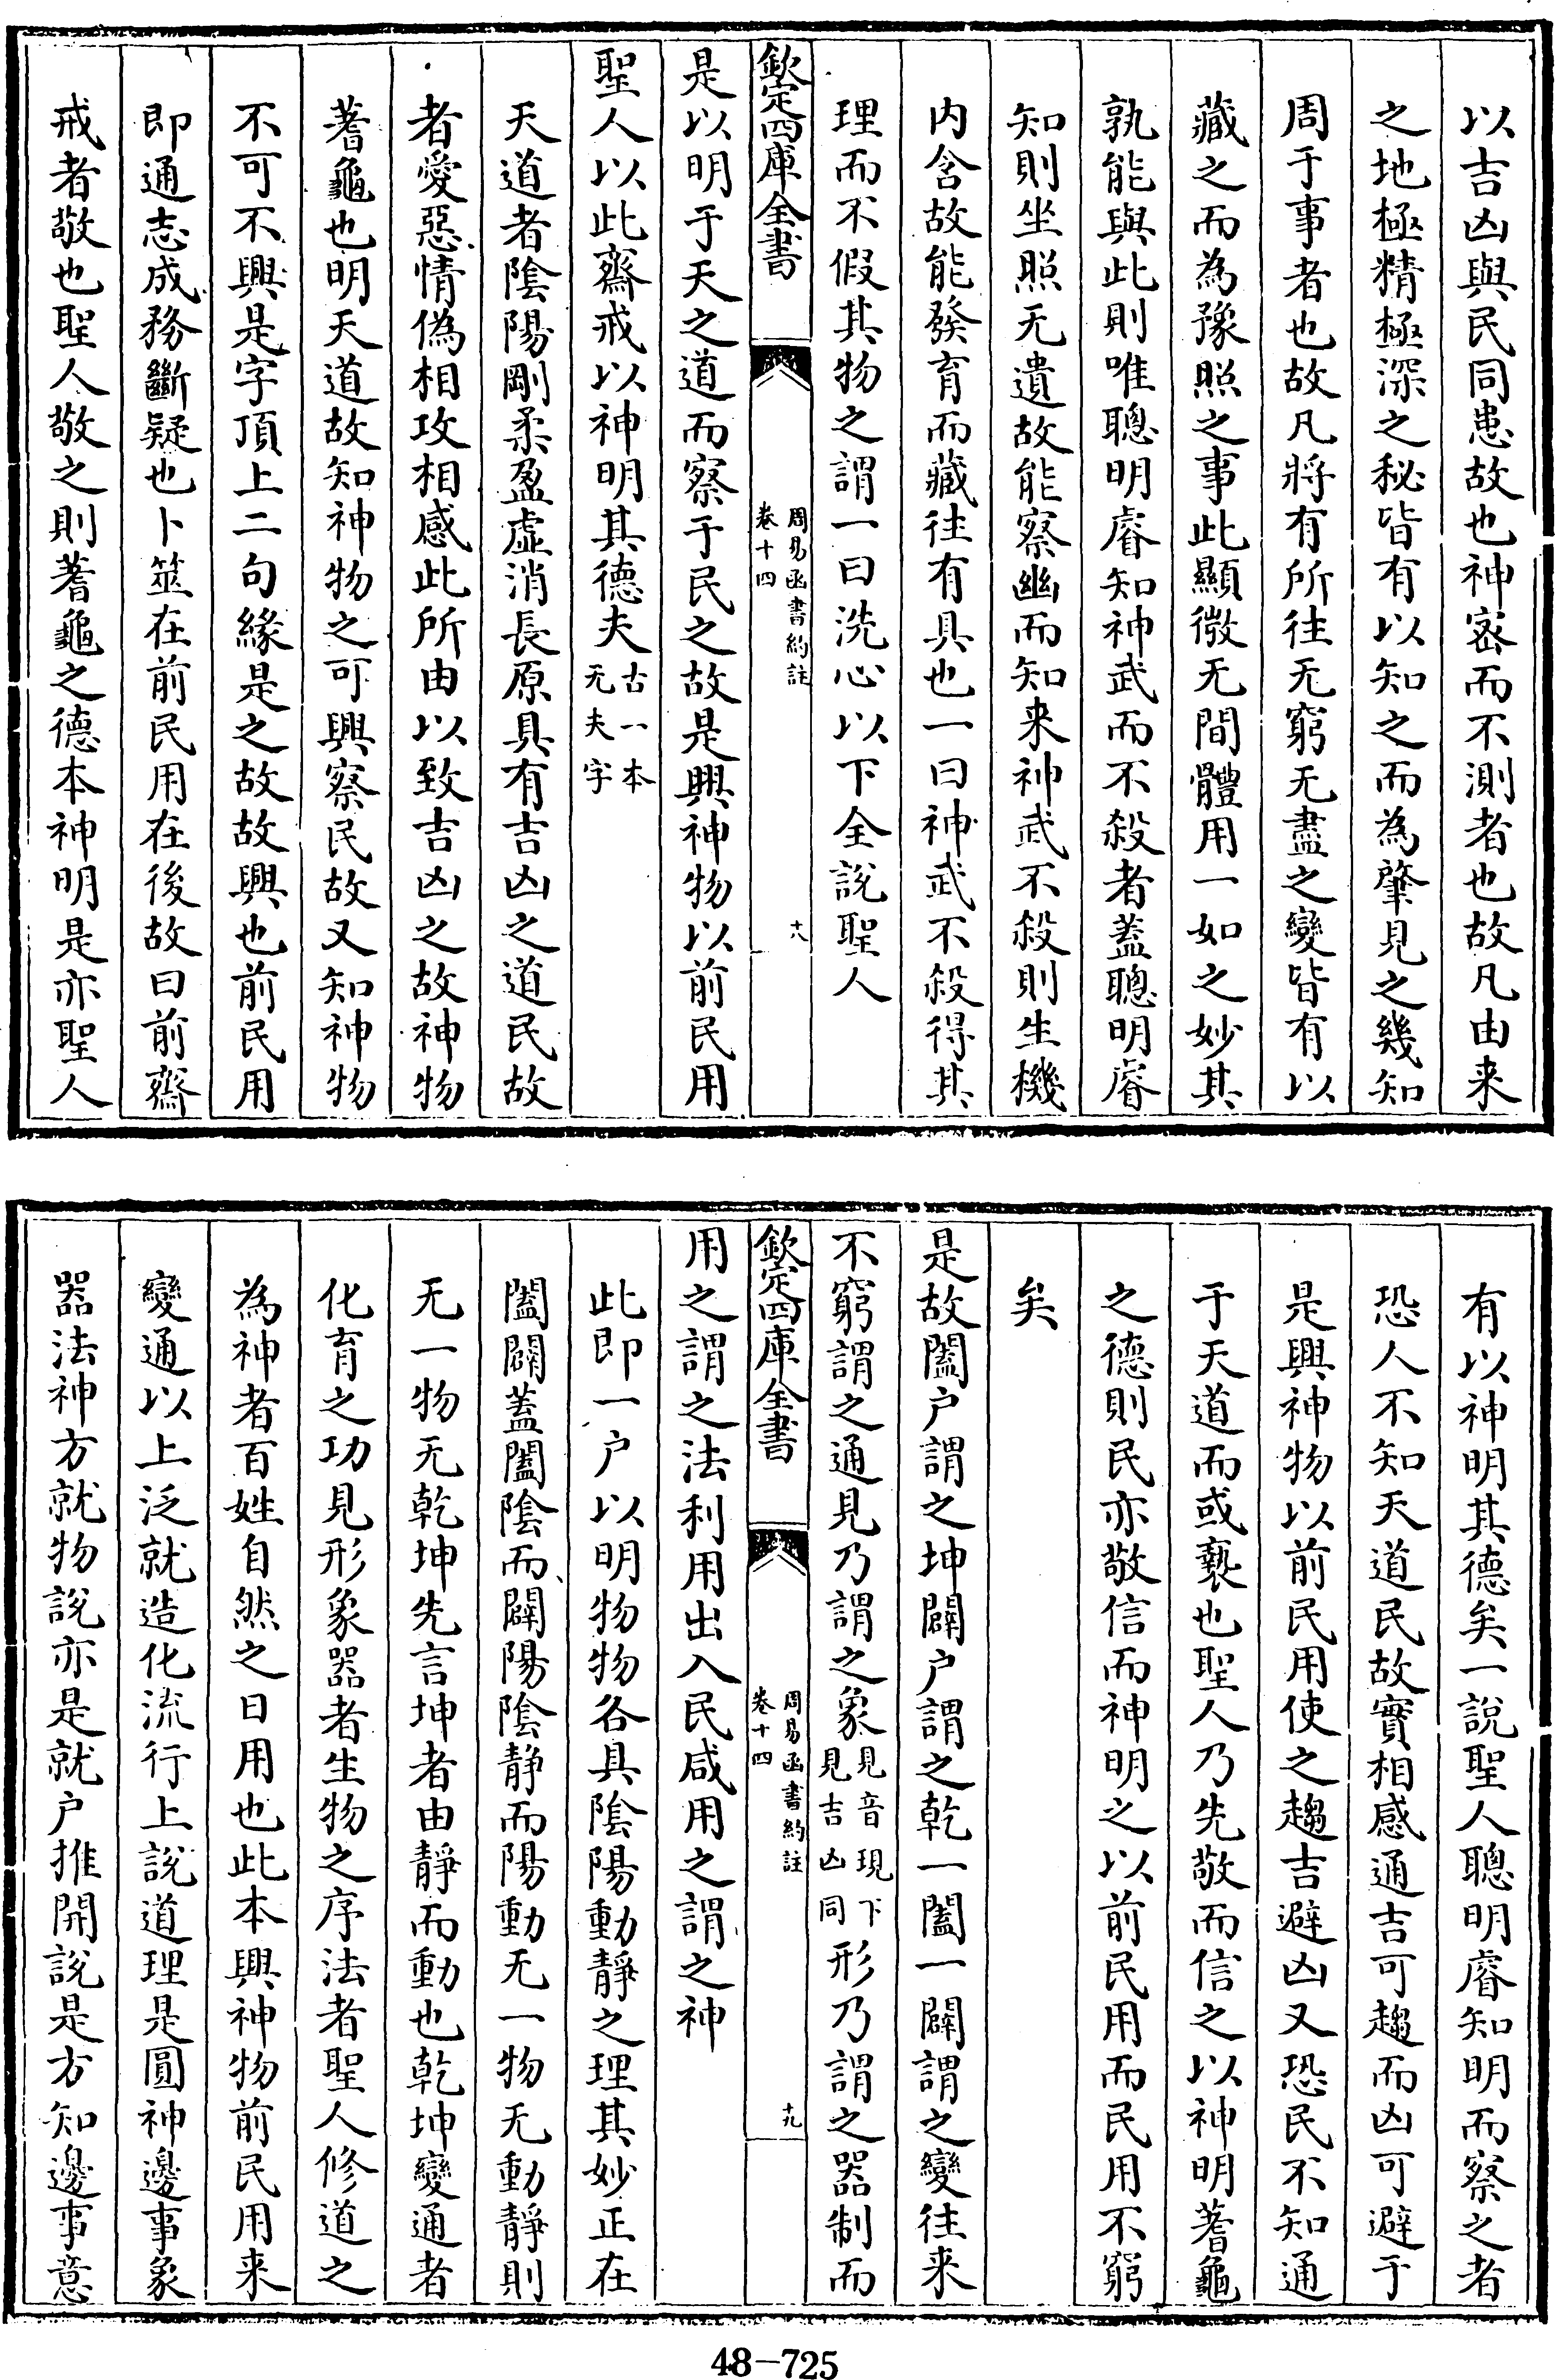 以吉凶與民同患故也神宻而不測者也故凡由来
之地極精極深之秘皆有以知之而為肇見之幾知
周于事者也故凡將有所往无窮无盡之變皆有以
藏之而為豫照之事此顯微无間體用一如之妙其
孰能與此則唯聰明睿知神武而不殺者蓋聰明睿
知則坐照无遺故能察幽而知来神武不殺則生機
内含故能發育而藏往有具也一曰神武不殺得其
理而不假其物之謂一曰洗心以下全說聖人
欽定四庫全書
周易函書約註
卷十四
十八
是以明于天之道而察于民之故是興神物以前民用
聖人以此齋戒以神明其德夫古一本无夫字
天道者陰陽剛柔盈虛消長原具有吉凶之道民故
者愛惡情偽相攻相感此所由以致吉凶之故神物
蓍龜也明天道故知神物之可興察民故又知神物
不可不興是字頂上二句緣是之故故興也前民用
即通志成務斷疑也卜筮在前民用在後故曰前齋
戒者敬也聖人敬之則蓍龜之德本神明是亦聖人
有以神明其德矣一說聖人聰明睿知明而察之者
恐人不知天道民故實相感通吉可趨而凶可避于
是興神物以前民用使之趨吉避凶又恐民不知通
于天道而或褻也聖人乃先敬而信之以神明蓍龜
之德則民亦敬信而神明之以前民用而民用不窮
矣
是故闔户謂之坤闢户謂之乾一闔一闢謂之變往来
不窮謂之通見乃謂之象見音現下見吉凶同形乃謂之器制而
欽定四庫全書
周易函書約註
卷十四
十九
用之謂之法利用出入民咸用之謂之神
此即一户以明物物各具陰陽動靜之理其妙正在
闔闢蓋闔陰而闢陽陰静而陽動无一物无動靜則
无一物无乾坤先言坤者由靜而動也乾坤變通者
化育之功見形象器者生物之序法者聖人修道之
為神者百姓自然之日用也此本興神物前民用来
變通以上泛就造化流行上說道理是圓神邊事象
器法神方就物說亦是就户推開說是方知邊事意
48-725